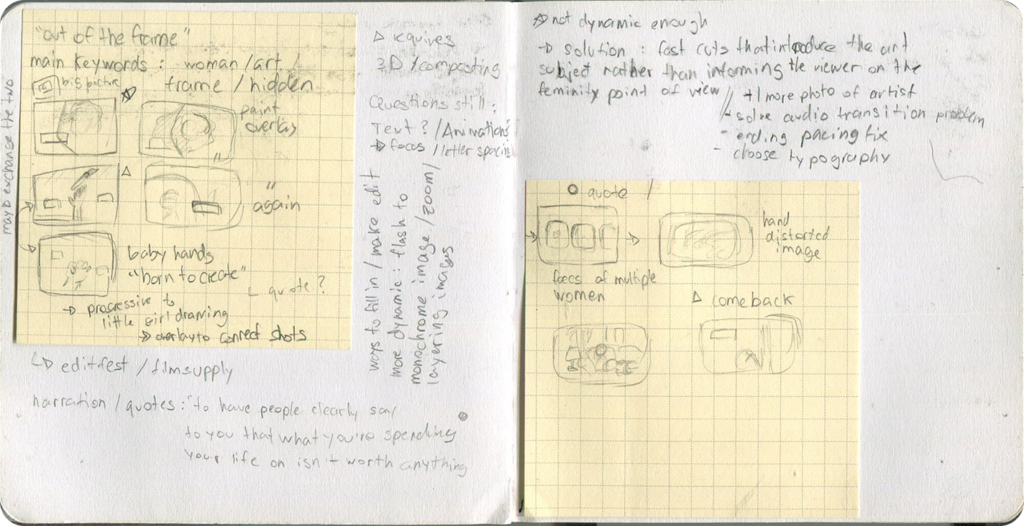 "out of the frame"
main keywords : woman / art
frame / hidden
big picture
paint
overlay
"
again
baby hands
"born to create"
quote?
→ progressive to
little girl drawing
→ overlay to connect shots
may b exchange the two
↳ editfest / filmsupply
narration / quotes : "to have people clearly say
to you that what you're spending
your life on isn't worth anything
Δ requires
3D / compositing
Questions still :
Text ? / Animation?
→ focus / letter spacing
ways to fill in / make edit
more dynamic : flash to
monochrome image / zoom /
layering images
☆ not dynamic enough
→ solution : fast cuts that introduce the art
subject rather than informing the viewer on the
feminity point of view
+1 more photo of artist
- solve audio transition problem
- ending pacing fix
- choose typography
quote /
hand
distorted
image
faces of multiple
women
Δ come back